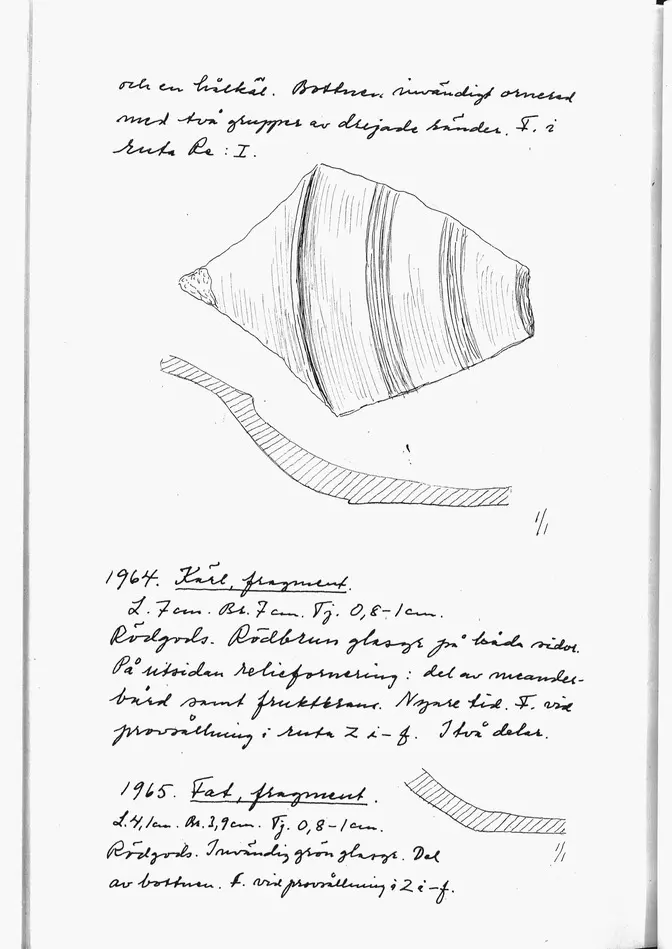 och en hålkäl. Bottnen invändigt ornerad
med två grupper av drejade ränder. F. i
ruta Re : I.
1/1
1964. Kärl, fragment.
L. 7 cm. Br. 7 cm. Tj. 0,8-1 cm.
Rödgods. Rödbrun glasyr på båda sidor.
På utsidan reliefornering: del av meander-
bård samt fruktkrans. Nyare tid. F. vid
provsållning i ruta Z i-f. I två delar.
1965. Fat, fragment.
L. 4,1 cm. Br. 3,9 cm. Tj. 0,8-1 cm.
Rödgods. Invändig grön glasyr. Del
av bottnen. F. vid provsållning i Z i-f.
1/1